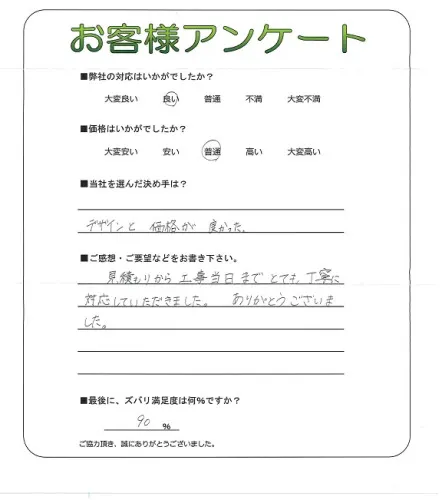 お客様アンケート
■弊社の対応はいかがでしたか？
大変良い 良い 普通 不満 大変不満
■価格はいかがでしたか？
大変安い 安い 普通 高い 大変高い
■当社を選んだ決め手は？
デザインと 価格が 良かった。
■ご感想・ご要望などをお書き下さい。
見積もりから 工事当日まで とても 丁寧に
対応していただきました。 ありがとうございま
した。
■最後に、ズバリ満足度は何％ですか？
90 ％
ご協力頂き、誠にありがとうございました。